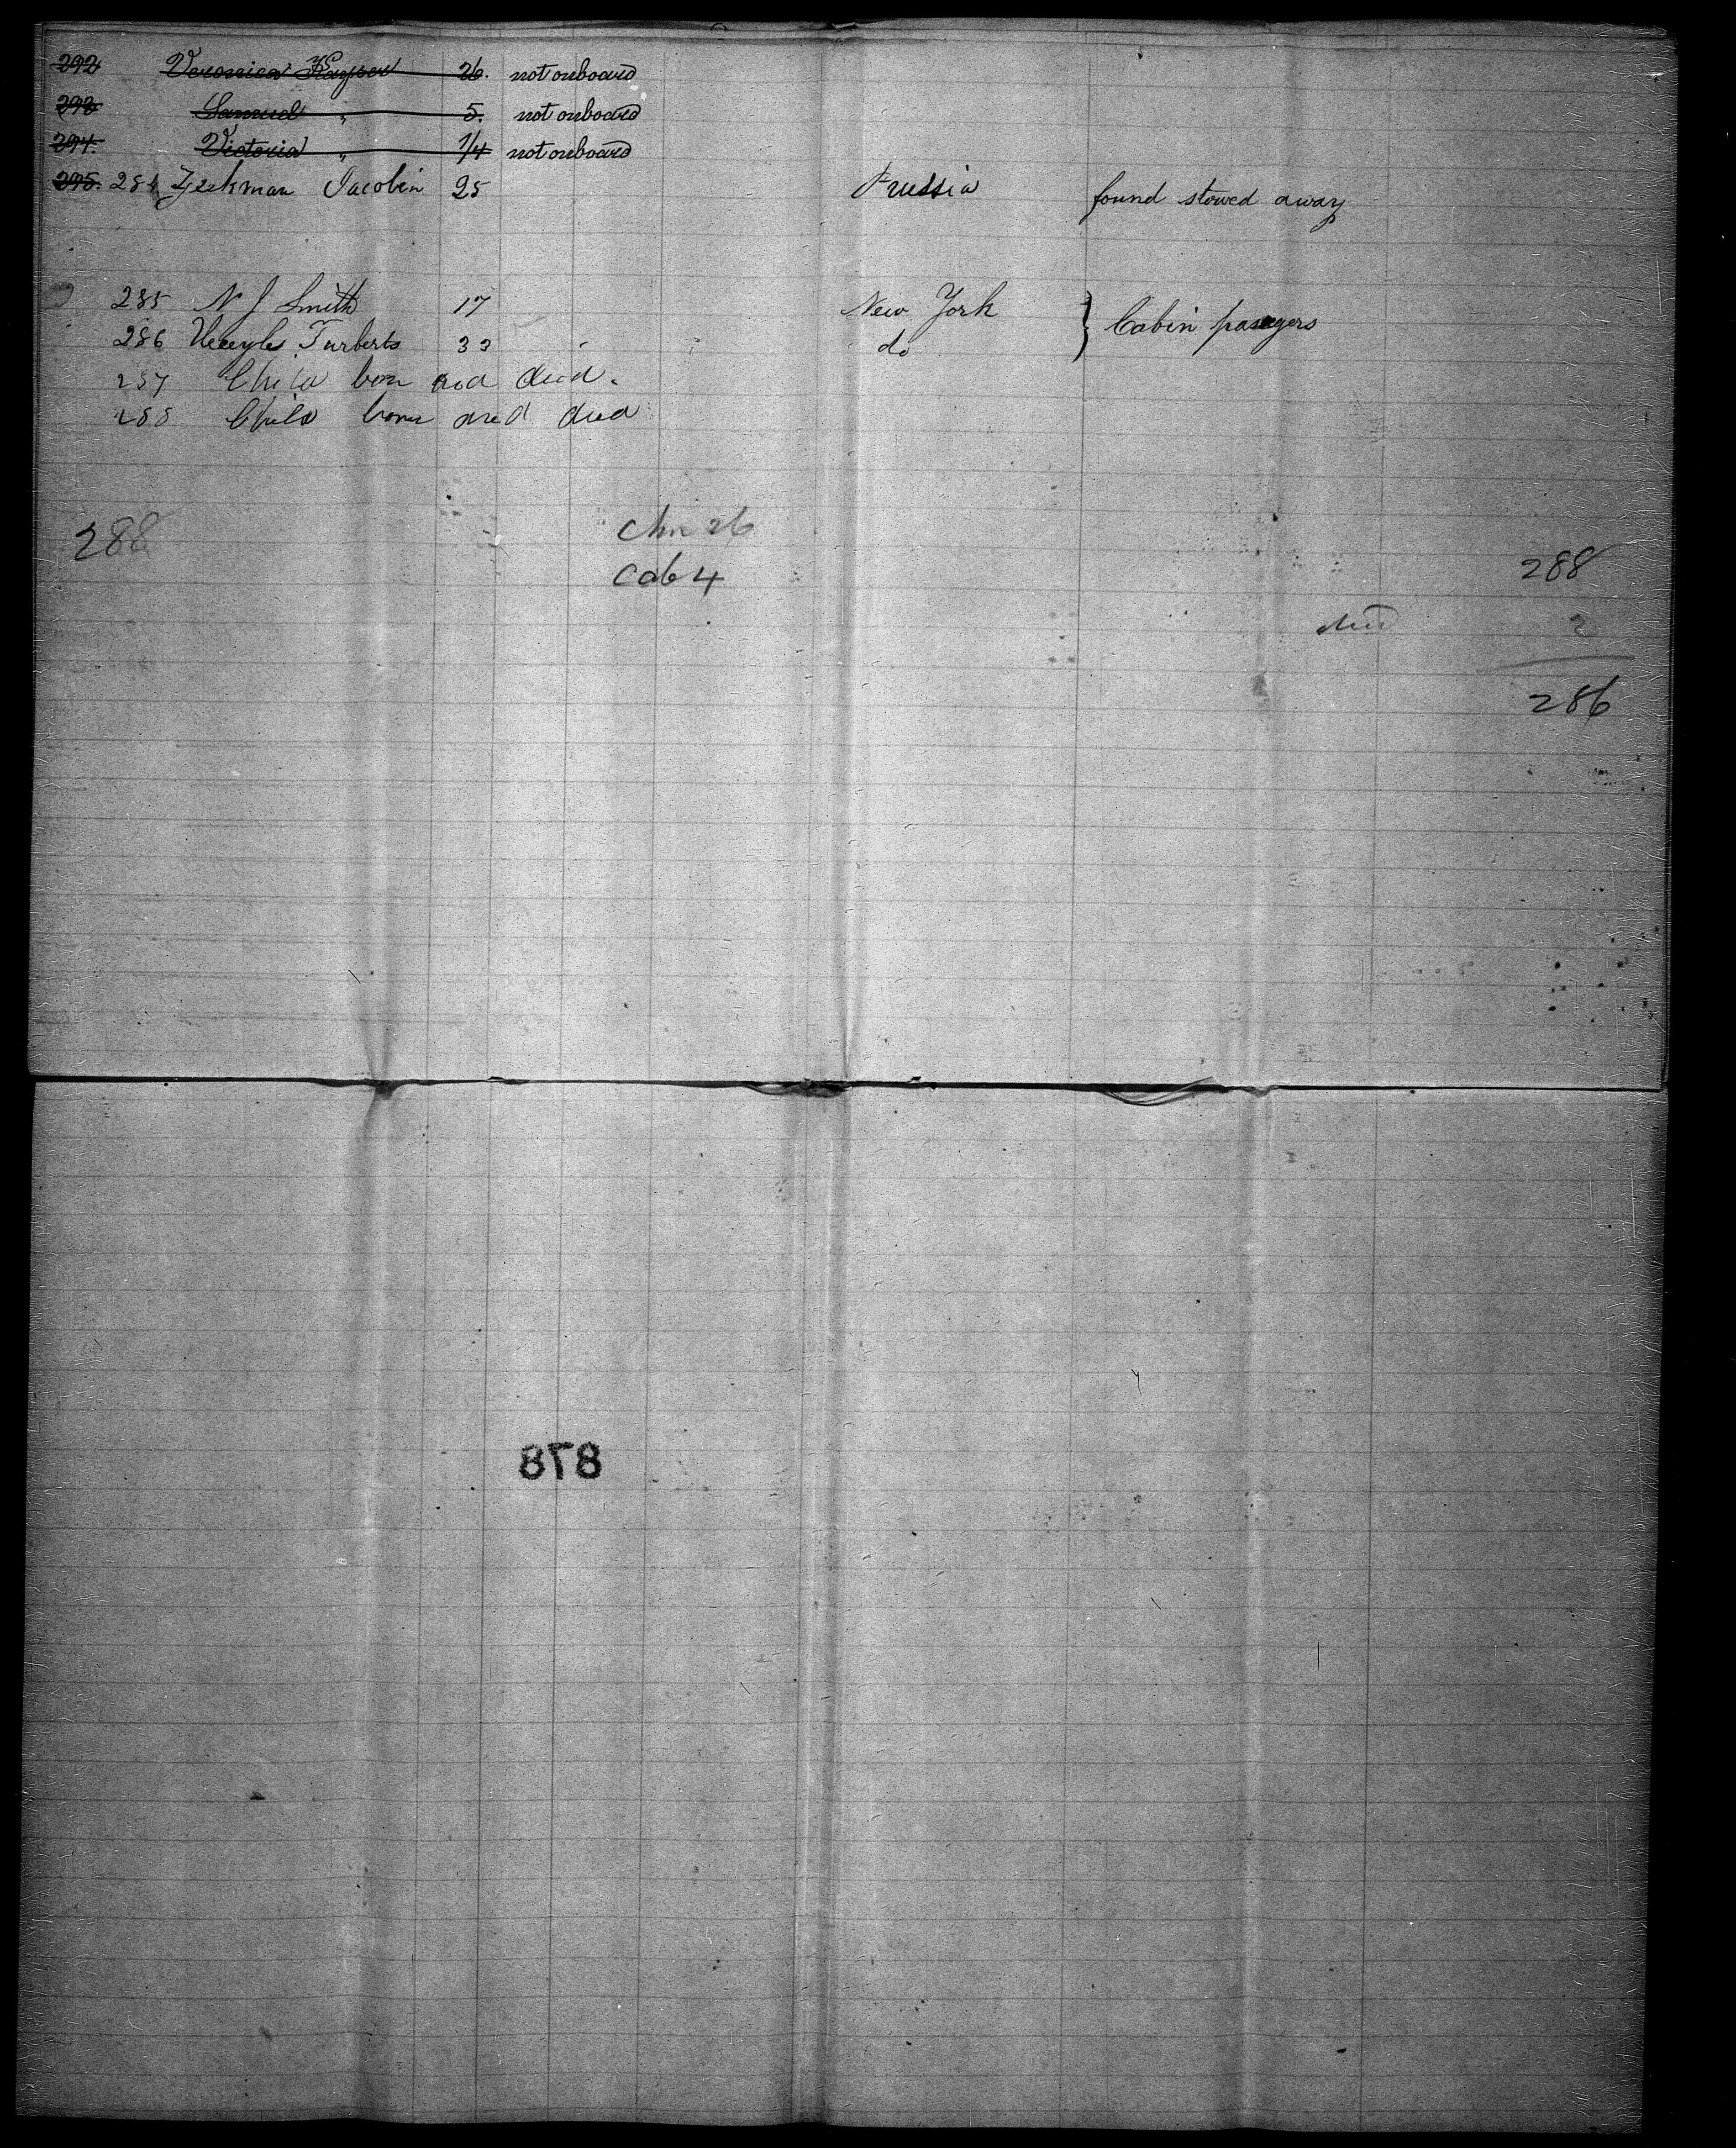 292 Veronica Kayser 26. not onboard
293 Samuel " 5. not onboard
294. Victoria " 1/4 not onboard
295. 284 Jacobin 25 Prussia found stowed away
285 N J Smith 17 New York } Cabin pasegers
286 Turberts 33 do
287 Child born and died.
288 Child born and died
288 26
Cab 4 288
died 2
286
878